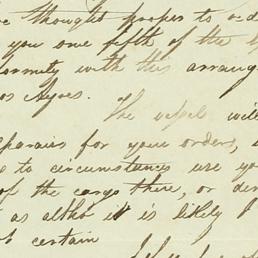 thought proper to
you one fifth of the
with this
os Ayres.
The vessel will
for your orders,
e to circumstances are you
of the cargo there, or
as altho it is likely
certain